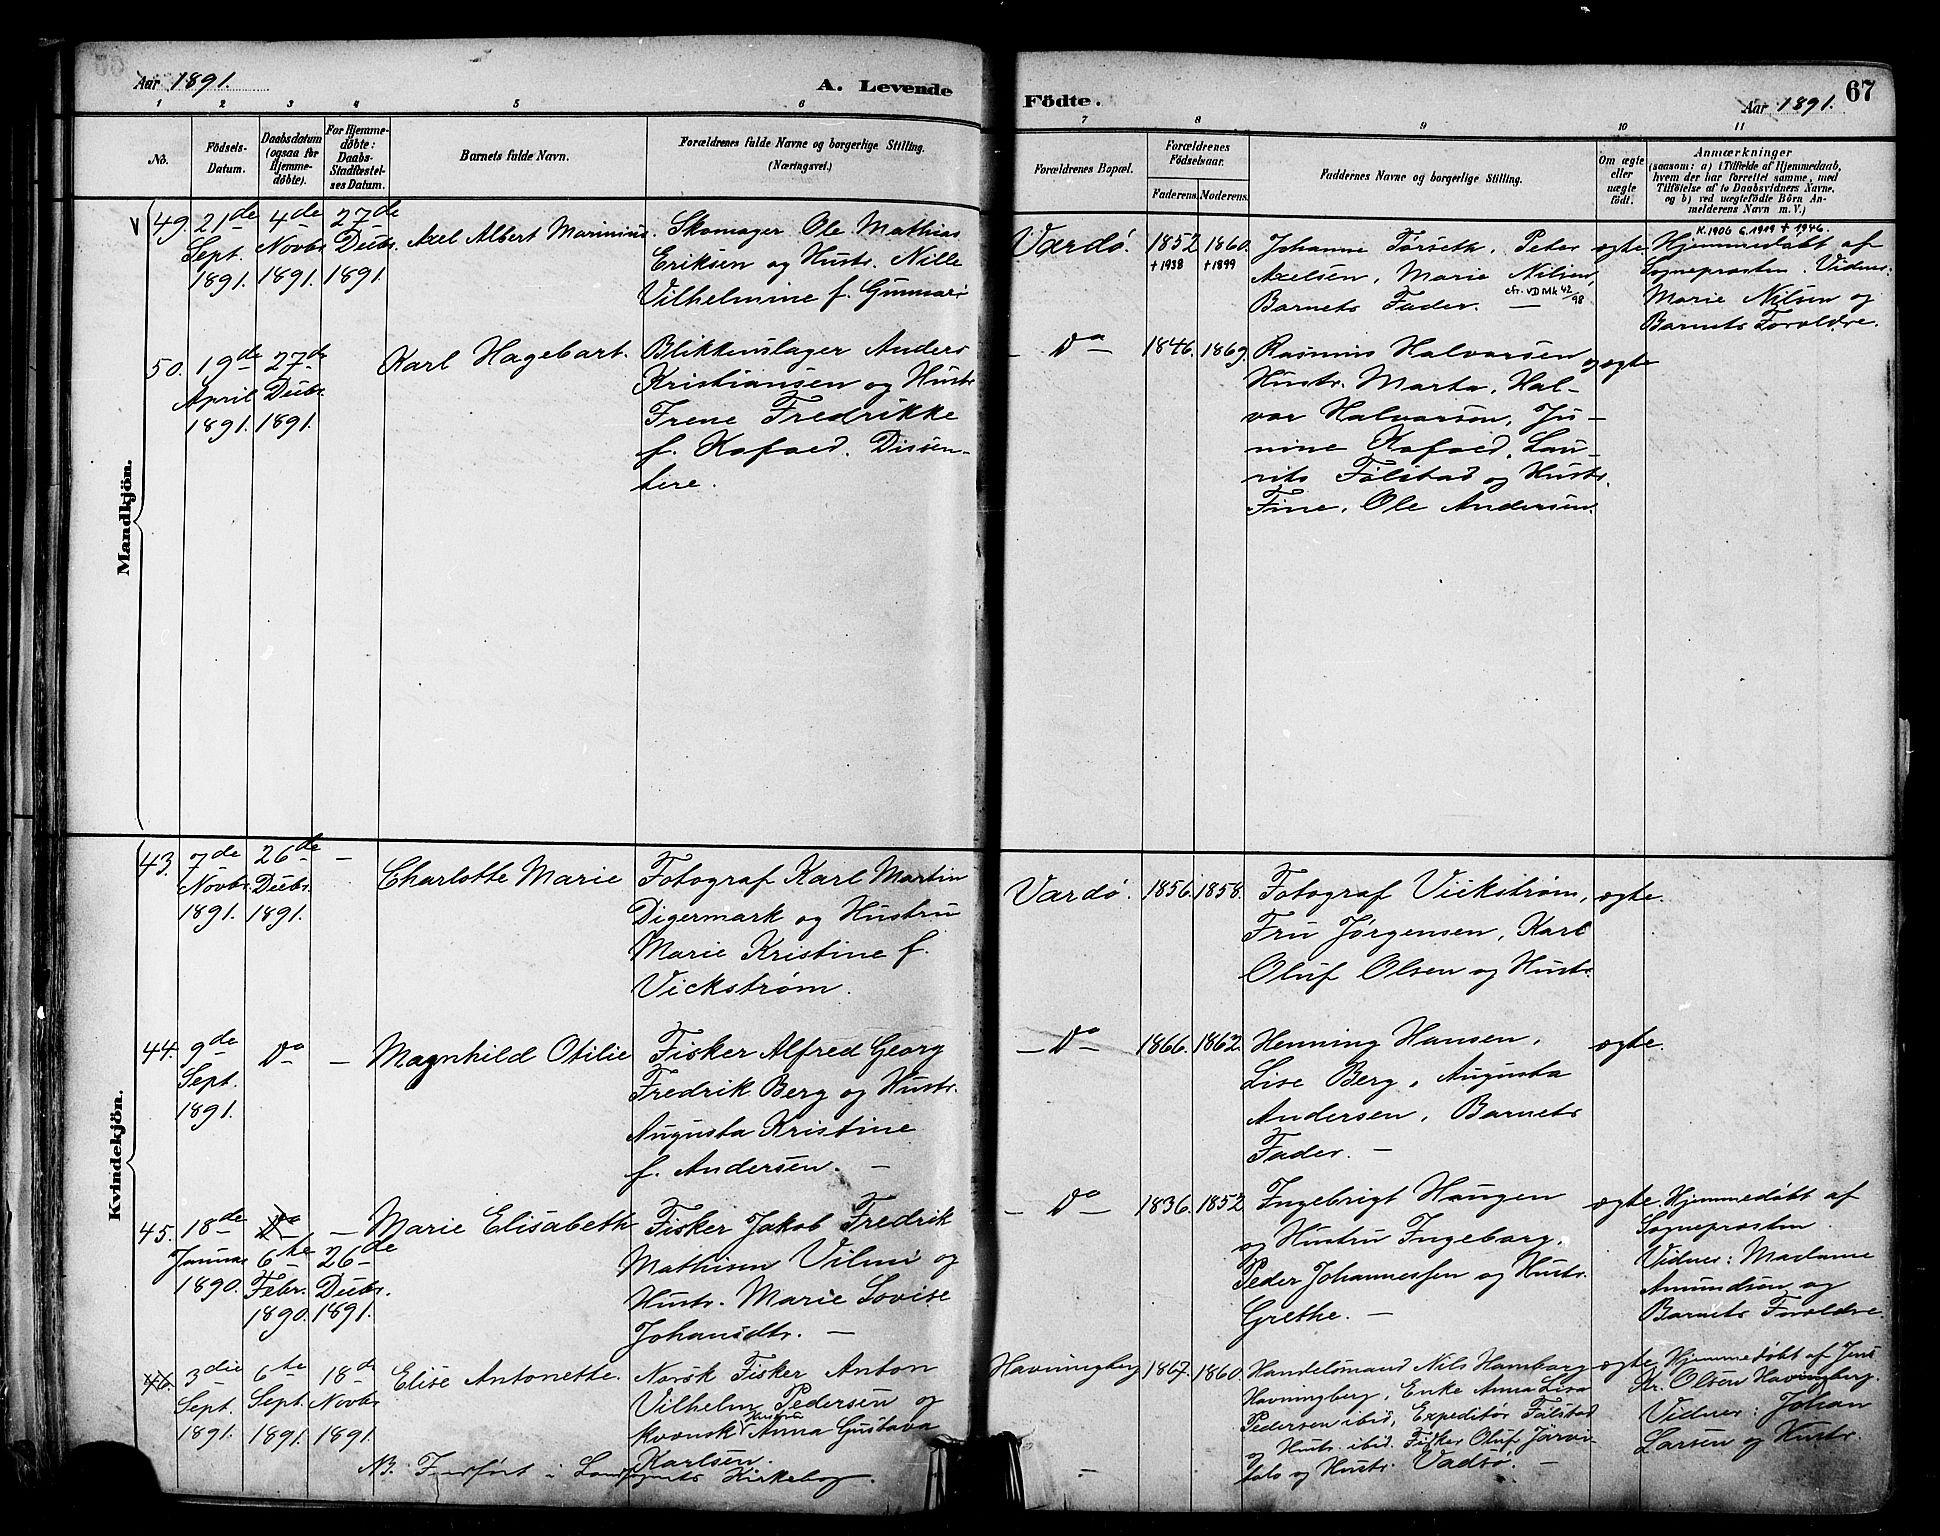 Aar 1891.
A. Levende
Födte.
Aar 1891.
67
1 2 3 4 5 6 7 8 9 10 11
No.
Födsels-
Datum.
Daabsdatum
(ogsaa for
Hjemme-
döbte).
For Hjemme-
döbte:
Daabs-
Stadfæstel-
ses Datum.
Barnets fulde Navn.
Forældrenes fulde Navne og borgerlige Stilling.
(Næringsvei.)
Forældrenes Bopæl.
Forældrenes
Födselsaar.
Faderens. Moderens.
Faddernes Navne og borgerlige Stilling.
Om ægte
eller
uægte
födt.
Anmærkninger
(saasom: a) i Tilfælde af Hjemmedaab,
hvem der har forrettet samme, med
Tilföielse af to Daabsvidners Navne.
og b) ved uægtefödte Börn An-
melderens Navn m. V.)
Mandkjön.
V
49.
21de
Sept.
1891.
4de
Novbr
1891.
27de
Decbr.
1891.
Axel Albert Marinius.
Skomager Ole Mathias
Eriksen og Hustr. Nille
Vilhelmine f. Gunnari
Vardø.
1852
+1938
1860.
+1899
Johanne Førseth, Peter
Axelsen, Marie Nilsen,
cfr. VD Mk 42/98
Barnets Fader. —
ægte.
K.1906 G.1919 + 1946.
Hjemmedøbt af
Sogneprosten. Vidner
Marie Nilsen og
Barnets Forældre.
50.
19de
April
1891.
27de
Decbr.
1891.
Karl Hagebart.
Blikkenslager Anders
Kristiansen og Hustr
Irene Fredrikke
f. Kofoed. Dissen-
tere.
— Do —
1846.
1869.
Rasmus Halvarsen
og
Hustr. Marta, Hal-
var Halvarsen, Ju-
nine Kofoed, Lau-
rits Følstad og Hustr.
Fine, Ole Andersen.
ægte
Kvindekjön.
43.
7de
Novbr.
1891.
26de
Decbr.
1891.
—
Charlotte Marie
Fotograf Karl Martin
Digermark og Hustru
Marie Kristine f.
Vickstrøm.
Vardø.
1856.
1858.
Fotograf Vickstrøm,
Fru Jørgensen, Karl
Oluf Olsen og Hustr.
ægte.
44.
9de
Sept.
1891.
Do
—
Magnhild Otilie
Fisker Alfred Georg
Fredrik Berg og Hustr.
Augusta Kristine
f. Andersen. —
— Do —
1866.
1862.
Henning Hansen,
Lise Berg, Augusta
Andersen, Barnets
Fader. —
ægte.
45.
18de
Januar
1890.
Do
6te
Febr.
1890.
—
26de
Decbr.
1891.
Marie Elisabeth
Fisker Jakob Fredrik
Mathisen Vilmi og
Hustr. Marie Lovise
Johansdtr. —
— Do —
1836.
1852
Ingebrigt Haugen
og Hustru Ingeborg,
Peder Johannessen og Hustr.
Grethe. —
ægte.
Hjemmedøbt af
Sogneprosten.
Vidner: Madame
Amundsen og
Barnets Forældre.
46.
3die
Sept.
1891.
6te
Sept.
1891.
18de
Novbr
1891.
Elise Antonette.
Norsk Fisker Anton
Vilhelm Pedersen og
kvensk Hustru Anna Gustava
Karlsen.
Havningberg
1867.
1860.
Handelsmand Nils Hamborg
Havningberg, Enke Anna Lisa
Pedersen ibid, Expeditør Følstad
og Hustr. ibid. Fisker Oluf Jarvi-
talo og Hustr. Vadsø. —
ægte
Hjemmedøbt af Jens
Kr. Olsen Havningberg.
Vidner: Johan
Larsen og Hustr.
NB. Indført i Landsognets Kirkebog.